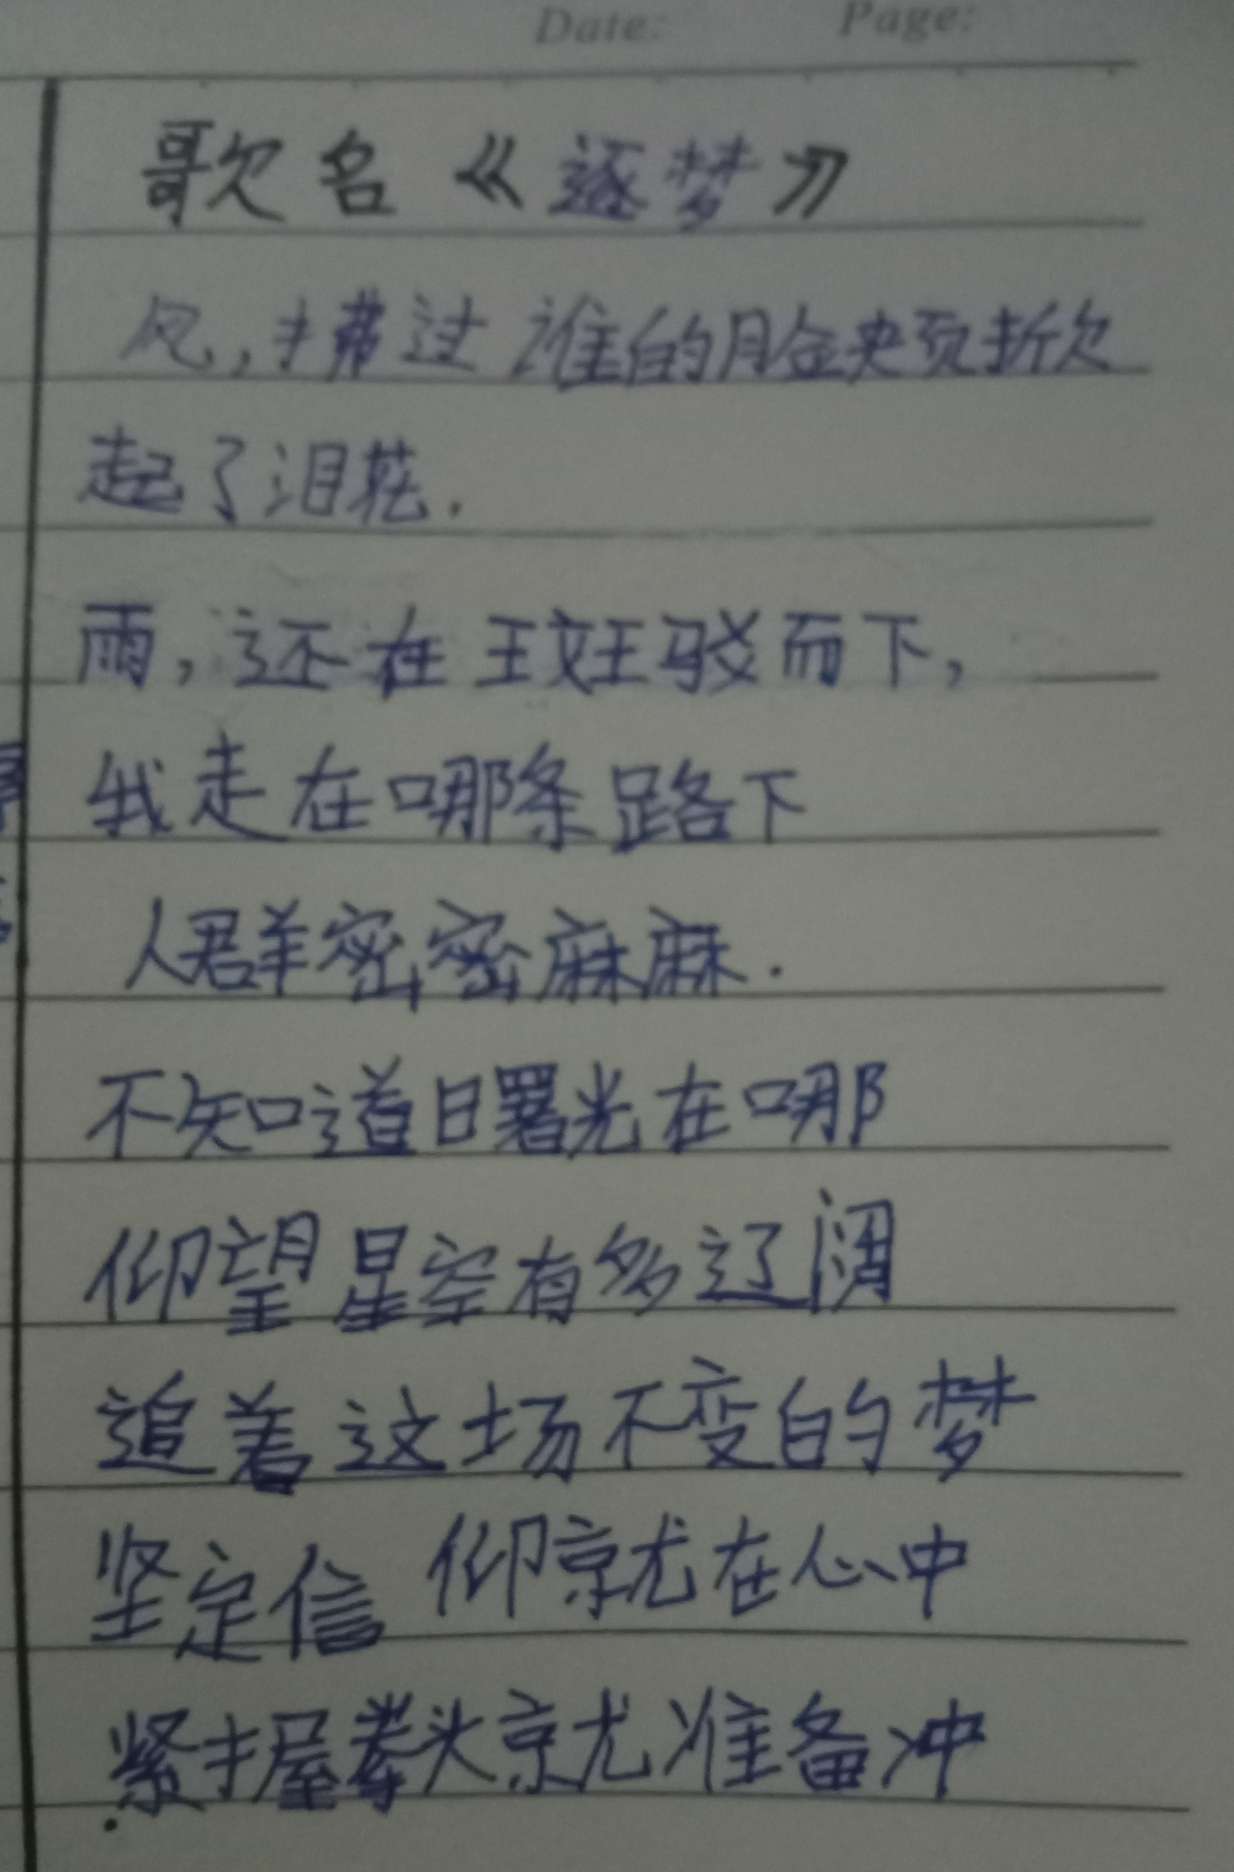 Date: Page:
歌名《逐梦》
风,拂过谁的脸颊掀
起了泪花.
雨,还在斑驳而下,
我走在哪条路下
人群密密麻麻.
不知道曙光在哪
仰望星空有多辽阔
追着这场不变的梦
坚定信仰就在心中
紧握拳头就准备冲